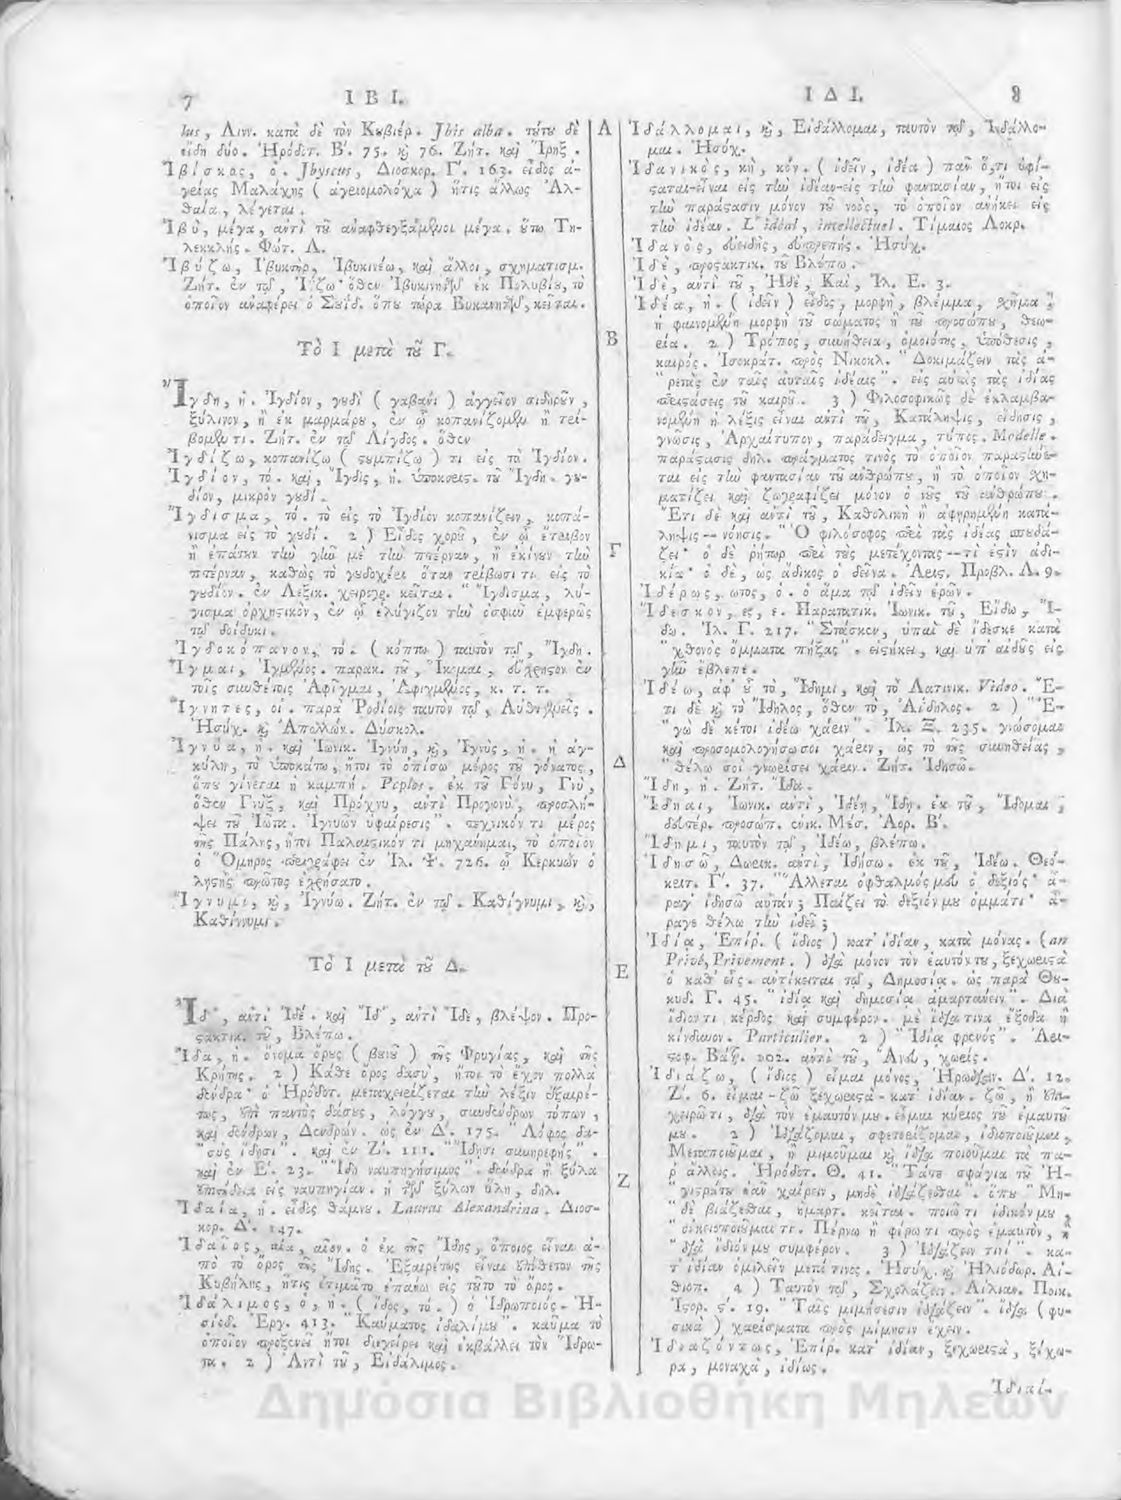 7 Ι Β Ι.
lus, Λινν. κατὰ δὲ τὸν Κυβιέρ. Jbis alba. τύτυ δὲ
εἴδη δύο. Ἡρόδοτ. Β΄. 75. καὶ 76. Ζήτ. καὶ Ἴρηξ.
Ἰβίσκος, ὁ. Jbyscus, Διοσκορ. Γ΄. 163. εἶδος ἀ-
γρίας Μαλάχης ( ἀγριομολόχα ) ἥτις ἄλλως Ἀλ-
θαία, λέγεται.
Ἰβὺ, μέγα, ἀντὶ τοῦ ἀναφθεγξάμενοι μέγα. οὕτω Τη-
λεκκλής. Φώτ. Λ.
Ἰβύζω, Ἰβυκτὴρ, Ἰβυκινέω, καὶ ἄλλοι, σχηματισμ.
Ζήτ. ἐν τῷ, Ἰΰζω· ὅθεν Ἰβυκινῆσαι ἐκ Πολυβίου, τὸ
ὁποῖον ἀναφέρει ὁ Σουΐδ. ὅπου τώρα Βυκανητῶν, κεῖται.
Τὸ Ι μετὰ τοῦ Γ.
Ἴγδη, ἡ. Ἰγδίον, γουδὶ ( γαβαθὶ ) ἀγγεῖον σιδηροῦν,
ξύλινον, ἢ ἐκ μαρμάρου, ἐν ᾧ κοπανίζομεν ἢ τρί-
βομέν τι. Ζήτ. ἐν τῷ Λίγδος. ὅθεν
Ἰγδίζω, κοπανίζω ( στουμπίζω ) τι εἰς τὸ Ἰγδίον.
Ἰγδίον, τό. καὶ, Ἴγδις, ἡ. ὑποκορις. τοῦ Ἴγδη. γου-
δίον, μικρὸν γουδί.
Ἴγδισμα, τό. τὸ εἰς τὸ Ἰγδίον κοπανίζειν, κοπά-
νισμα εἰς τὸ γουδί. 2 ) Εἶδος χοροῦ, ἐν ᾧ ἔτριβον
ἢ ἐπάτουν τὴν γῆν μὲ τὴν πτέρναν, ἢ ἐκίνουν τὴν
πτέρναν, καθὼς τὸ γουδοχέρι ὅταν τρίβωσί τι εἰς τὸ
γουδίον. ἐν Λεξικ. χειρογρ. κεῖται. " Ἴγδισμα, λύ-
γισμα ὀρχηστικὸν, ἐν ᾧ ἐλύγιζον τὴν ὀσφῦν ἐμφερῶς
τῷ δοίδυκι.
Ἰγδοκόπανον, τό. ( κόπτω ) ταυτὸν τῷ, Ἴγδη.
Ἴγμαι, Ἰγμένος. παρακ. τοῦ, Ἵκομαι, εὔχρηστον ἐν
τοῖς συνθέτοις Ἀφῖγμαι, Ἀφιγμένος, κ. τ. τ.
Ἴγνητες, οἱ. παρὰ Ῥοδίοις ταυτὸν τῷ, Αὐθιγενεῖς.
Ἡσύχ. καὶ Ἀπολλών. Δύσκολ.
Ἰγνύα, ἡ. καὶ Ἰωνικ. Ἰγνύη, καὶ, Ἰγνὺς, ἡ. ἡ ἀγ-
κύλη, τὸ ὑποκάτω, ἤτοι τὸ ὀπίσω μέρος τοῦ γόνατος,
ὅπου γίνεται ἡ καμπή. Peplos. ἐκ τοῦ Γόνυ, Γνὺ,
ὅθεν Γνὺξ, καὶ Πρόχνυ, ἀντὶ Προγονὺ, προσλή-
ψει τοῦ Ἰῶτα. Ἰγνυῶν ὑφαίρεσις". τεχνικόν τι μέρος
τῆς Πάλης, ἤτοι Παλαιστικόν τι μηχάνημα, τὸ ὁποῖον
ὁ Ὅμηρος περιγράφει ἐν Ἰλ. Ψ. 726. ᾧ Κερκυὼν ὁ
ληστὴς πρῶτος ἐχρήσατο.
Ἴγνυμι, καὶ, Ἰγνύω. Ζήτ. ἐν τῷ. Καθίγνυμι, καὶ,
Καθίννυμι.
Τὸ Ι μετὰ τοῦ Δ.
Ἲδ', ἀντὶ Ἰδέ. καὶ Ἴδ', ἀντὶ Ἴδε, βλέψον. Προ-
στακτικ. τοῦ, Βλέπω.
Ἴδα, ἡ. ὄνομα ὄρους ( βουνοῦ ) τῆς Φρυγίας, καὶ τῆς
Κρήτης. 2 ) Κάθε ὄρος δασὺ, ἤτοι τὸ ἔχον πολλὰ
δένδρα· ὁ Ἡρόδοτ. μεταχειρίζεται τὴν λέξιν ἐξαιρέ-
τως, ἐπὶ παντὸς δάσους, λόγγου, συνδένδρων τόπων,
καὶ δένδρων, Δενδρών. ὡς ἐν Δ΄. 175. " Λόφος δα-
" σὺς ἴδῃσι". καὶ ἐν Ζ΄. 111. " Ἴδῃσι συνηρεφής".
καὶ ἐν Ε΄. 23. " Ἴδη ναυπηγήσιμος". δένδρα ἢ ξύλα
ἐπιτήδεια εἰς ναυπηγίαν. ἡ τῶν ξύλων ὕλη, δηλ.
Ἰδαία, ἡ. εἶδος θάμνου. Laurus Alexandrina. Διοσ-
κορ. Δ΄. 147.
Ἰδαῖος, αία, αῖον. ὁ ἐκ τῆς Ἴδης, ὅποιος εἶναι ἀ-
πὸ τὸ ὄρος τῆς Ἴδης. Ἐξαιρέτως εἶναι ἐπίθετον τῆς
Κυβήλης, ἥτις ἐτιμᾶτο ἐπάνω εἰς τοῦτο τὸ ὄρος.
Ἰδάλιμος, ὁ, ἡ. ( ἶδος, τό. ) ὁ Ἱδρωποιός. Ἡ-
σίοδ. Ἔργ. 413. " Καύματος ἰδαλίμου". καῦμα τὸ
ὁποῖον προξενεῖ ἤτοι διεγείρει καὶ ἐκβάλλει τὸν Ἵδρω-
τα. 2 ) Ἀντὶ τοῦ, Εἰδάλιμος.
Α
Β
Γ
Δ
Ε
Ζ
Ι Δ Ι. 8
Ἰδάλλομαι, καὶ, Εἰδάλλομαι, ταυτὸν τῷ, Ἰνδάλλο-
μαι. Ἡσύχ.
Ἰδανικὸς, κὴ, κόν. ( ἰδεῖν, ἰδέα ) πᾶν ὅ,τι ὑφί-
σταται-εἶναι εἰς τὴν ἰδέαν-εἰς τὴν φαντασίαν, ἤτοι εἰς
τὴν παράστασιν μόνον τοῦ νοὸς, τὸ ὁποῖον ἀνήκει εἰς
τὴν ἰδέαν. L'idéal, intellectuel. Τίμαιος Λοκρ.
Ἰδανὸς, εὐειδὴς, εὐπρεπής. Ἡσύχ.
Ἴδε, προστακτικ. τοῦ Βλέπω.
Ἰδὲ, ἀντὶ τοῦ, Ἠδὲ, Καὶ, Ἰλ. Ε. 3.
Ἰδέα, ἡ. ( ἰδεῖν ) εἶδος, μορφὴ, βλέμμα, σχῆμα,
ἡ φαινομένη μορφὴ τοῦ σώματος ἢ τοῦ προσώπου, θεω-
ρία. 2 ) Τρόπος, συνήθεια, ὁμοιότης, ὑπόθεσις,
καιρός. Ἰσοκράτ. πρὸς Νικοκλ. " Δοκιμάζειν τὰς ἀ-
" ρετὰς ἐν ταῖς αὐταῖς ἰδέαις". εἰς αὐτὰς τὰς ἰδίας
περιστάσεις τοῦ καιροῦ. 3 ) Φιλοσοφικῶς δὲ ἐκλαμβα-
νομένη ἡ λέξις εἶναι ἀντὶ τοῦ, Κατάληψις, εἴδησις,
γνῶσις, Ἀρχαίτυπον, παράδειγμα, τύπος. Modelle.
παράστασις δηλ. πράγματος τινὸς τὸ ὁποῖον παρασταίνε-
ται εἰς τὴν φαντασίαν τοῦ ἀνθρώπου, ἢ τὸ ὁποῖον σχη-
ματίζει καὶ ζωγραφίζει μόνον ὁ νοῦς τοῦ ἀνθρώπου.
Ἔτι δὲ καὶ ἀντὶ τοῦ, Καθολικὴ ἢ ἀφῃρημένη κατά-
ληψις -- νόησις. " Ὁ φιλόσοφος περὶ τὰς ἰδέας σπουδά-
ζει· ὁ δὲ ῥήτωρ περὶ τοὺς μετέχοντας -- τί ἐστὶν ἀδι-
κία· ὁ δὲ, ὡς ἄδικος ὁ δεῖνα. Ἀρις. Προβλ. Λ. 9.
Ἰδέρως, ωτος, ὁ. ὁ ἅμα τῷ ἰδεῖν ἐρῶν.
Ἴδεσκον, ες, ε. Παρατατικ. Ἰωνικ. τοῦ, Εἴδω, Ἴ-
δω. Ἰλ. Γ. 217. " Στάσκεν, ὑπαὶ δὲ ἴδεσκε κατὰ
" χθονὸς ὄμματα πήξας". εἰστήκει, καὶ ὑπ' αἰδοῦς εἰς
γῆν ἔβλεπε.
Ἰδέω, ἀφ' οὗ τὸ, Ἴδημι, καὶ τὸ Λατινικ. Video. Ἔ-
τι δὲ καὶ τὸ Ἴδηλος, ὅθεν τὸ, Ἀίδηλος. 2 ) " Ἐ-
" γὼ δὲ κέ τοι ἰδέω χάριν". Ἰλ. Ξ. 235. γνώσομαι
καὶ προσομολογήσω σοι χάριν, ὡς τὸ τῆς συνηθείας,
" θέλω σοὶ γνωρίσει χάριν. Ζήτ. Ἰδησῶ.
Ἴδη, ἡ. Ζήτ. Ἴδα.
Ἴδηαι, Ἰωνικ. ἀντὶ, Ἰδέῃ, Ἴδῃ. ἐκ τοῦ, Ἴδομαι,
δευτέρ. προσώπ. ἑνικ. Μέσ. Ἀορ. Β΄.
Ἴδημι, ταυτὸν τῷ, Ἰδέω, βλέπω.
Ἰδησῶ, Δωρικ. ἀντὶ, Ἰδήσω. ἐκ τοῦ, Ἰδέω. Θεό-
κριτ. Γ΄. 37. " Ἄλλεται ὀφθαλμός μευ ὁ δεξιός· ἆ-
ρά γ' ἰδησῶ αὐτάν; Παίζει τὸ δεξιόν μου ὀμμάτι· ἆ-
ραγε θέλω τὴν ἰδεῖ;
Ἰδίᾳ, Ἐπίρ. ( ἴδιος ) κατ' ἰδίαν, κατὰ μόνας. (en
Privé, Privement. ) διὰ μόνον τὸν ἑαυτόν του, ξεχωριστὰ
ὁ καθ' εἷς. ἀντίκειται τῷ, Δημοσίᾳ. ὡς παρὰ Θου-
κυδ. Γ. 45. " ἰδίᾳ καὶ δημοσίᾳ ἁμαρτάνειν". Διὰ
ἴδιόν τι κέρδος καὶ συμφέρον. μὲ ἴδιά τινα ἔξοδα ἢ
κίνδυνον. Particulier. 2 ) " Ἰδίᾳ φρενός". Ἀρι-
στοφ. Βάτρ. 102. ἀντὶ τοῦ, Ἄνευ, χωρίς.
Ἰδιάζω, ( ἴδιος ) εἶμαι μόνος, Ἡρωδιαν. Δ΄. 12.
Ζ΄. 6. εἶμαι - ζῶ ξεχωριστὰ - κατ' ἰδίαν. ζῶ, ἢ ἐπι-
χειρῶ τι, διὰ τὸν ἐμαυτόν μου. εἶμαι κύριος τοῦ ἐμαυτοῦ
μου. 2 ) Ἰδιάζομαι, σφετερίζομαι, ἰδιοποιοῦμαι,
Μεταποιοῦμαι, ἢ μιμοῦμαι καὶ ἴδια ποιοῦμαι τὰ πα-
ρ' ἄλλοις. Ἡρόδοτ. Θ. 41. " Τά τε σφάγια τοῦ Ἡ-
" γιστράτου ἐᾶν χαίρειν, μηδὲ ἰδιάζεσθαι". ὅπου " Μη-
" δὲ βιάζεσθαι, ἡμαρτ. κεῖται. ποιῶ τι ἰδικόν μου,
" οἰκειοποιοῦμαί τι. Πέρνω ἢ φέρω τι πρὸς ἐμαυτὸν, ἢ
" διὰ ἴδιόν μου συμφέρον. 3 ) Ἰδιάζειν τινί". κα-
τ' ἰδίαν ὁμιλεῖν μετά τινος. Ἡσύχ. καὶ Ἡλιόδωρ. Αἰ-
θιοπ. 4 ) Ταυτὸν τῷ, Σχολάζειν. Αἰλιαν. Ποικ.
Ἱστορ. ς΄. 19. " Ταῖς μιμήσεσιν ἰδιάζειν". ἴδια ( φυ-
σικὰ ) χαρίσματα πρὸς μίμησιν ἔχειν.
Ἰδιαζόντως, Ἐπίρ. κατ' ἰδίαν, ξεχωριστὰ, ξέχω-
ρα, μοναχὰ, ἰδίως.
Ἰδικί-
Δημόσια Βιβλιοθήκη Μηλεών